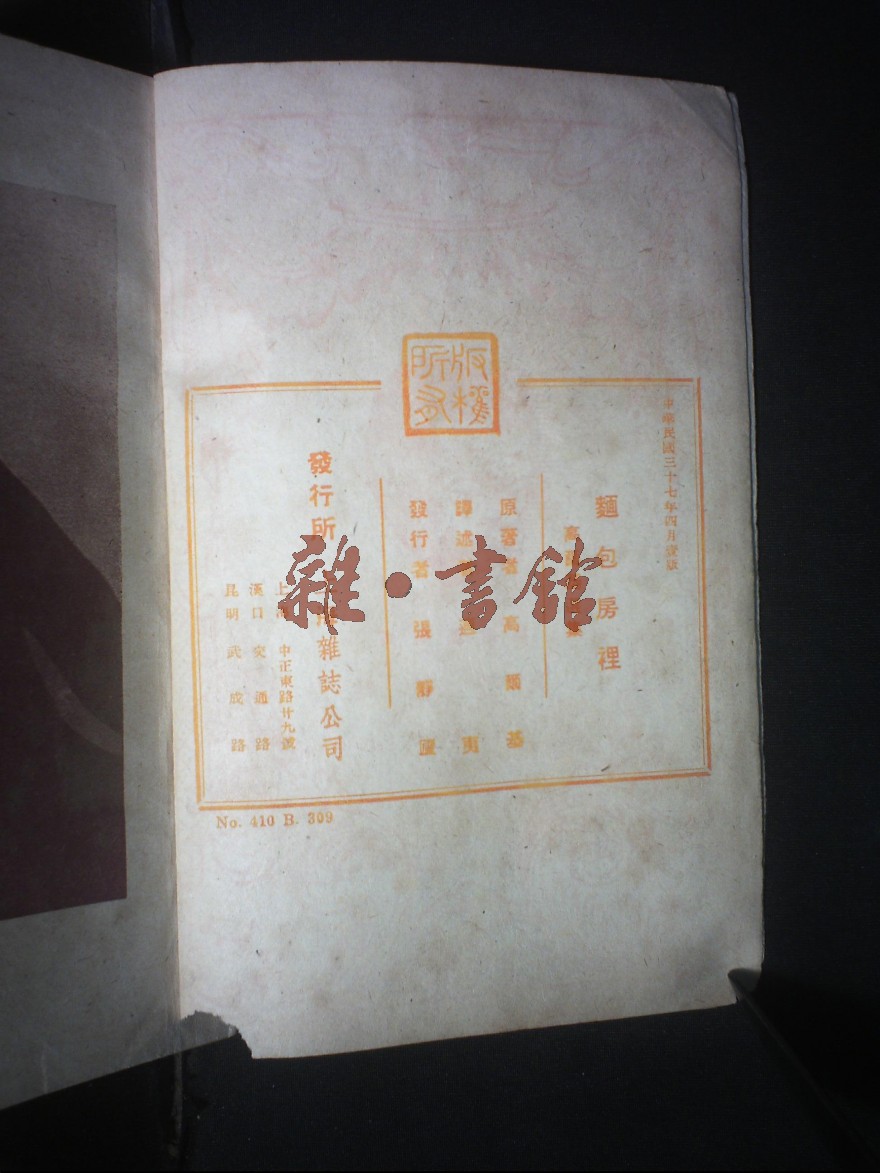 版權
所有
中華民國三十七年四月壹版
麵包房裡
高
原著者 高爾基
譯述 夷
發行者 張靜廬
發行所 海雜誌公司
上 中正東路廿九號
漢口交通路
昆明武成路
No. 410 B. 309
雜·書館